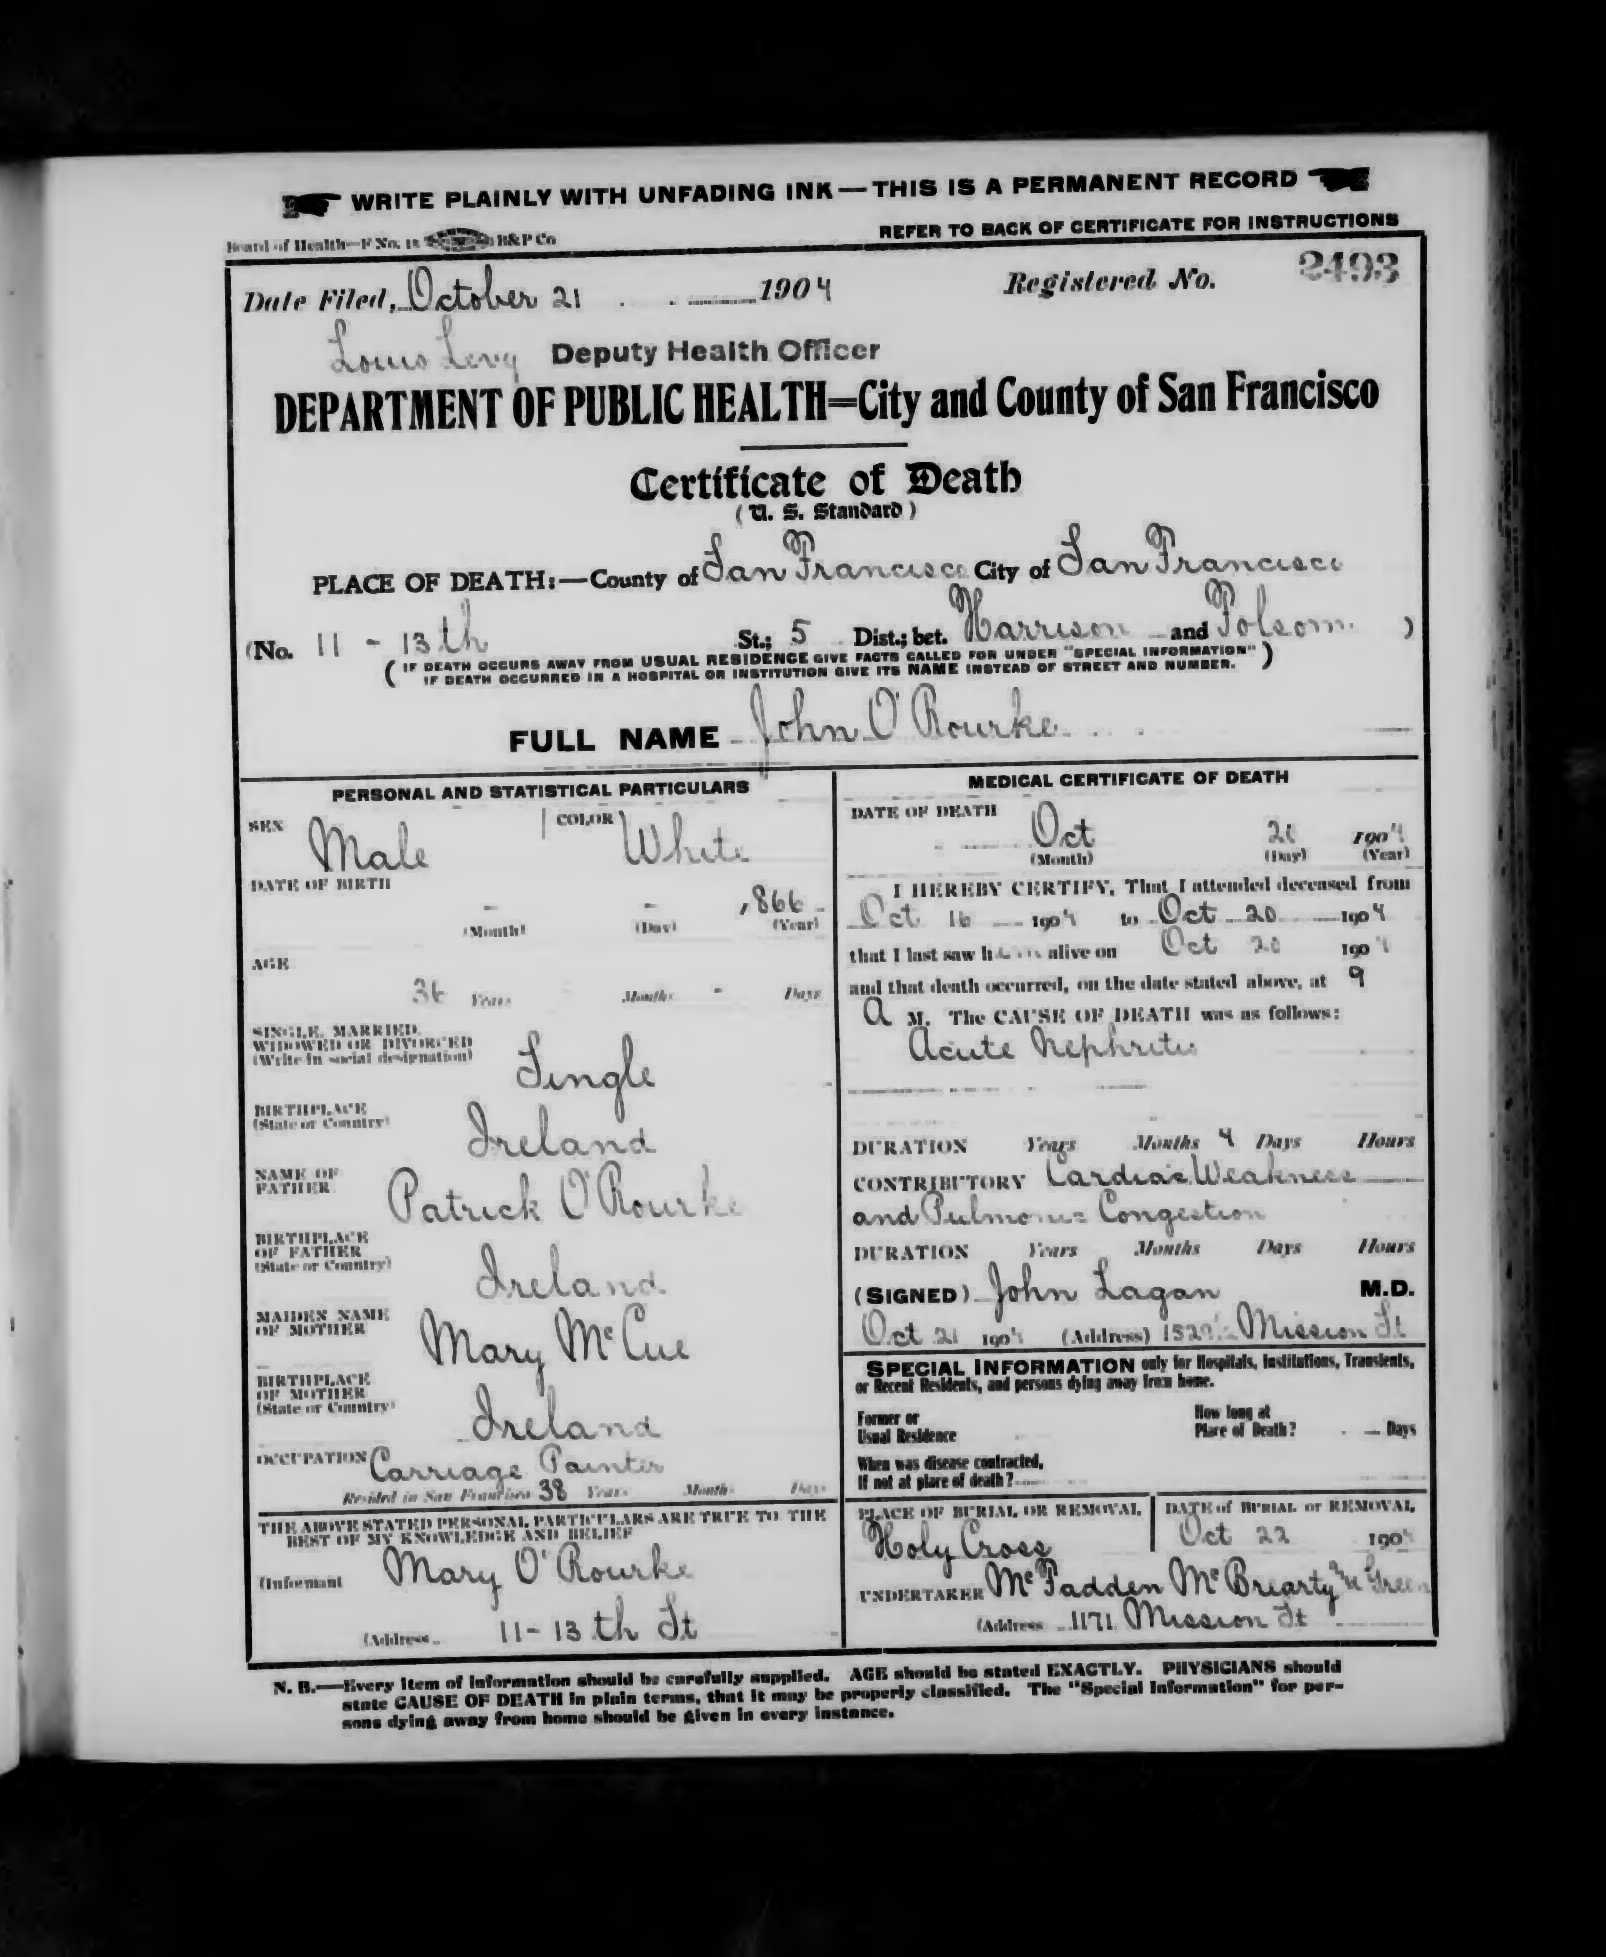 WRITE PLAINLY WITH UNFADING INK — THIS IS A PERMANENT RECORD
Board of Health—F No. 15 H&P Co REFER TO BACK OF CERTIFICATE FOR INSTRUCTIONS
Date Filed, October 21 1904 Registered No. 2493
Louis Levy Deputy Health Officer
DEPARTMENT OF PUBLIC HEALTH=City and County of San Francisco
Certificate of Death
(U. S. Standard)
PLACE OF DEATH:—County of San Francisco City of San Francisco
(No. 11 - 13th St.; 5 Dist.; bet. Harrison and Folsom )
( IF DEATH OCCURS AWAY FROM USUAL RESIDENCE GIVE FACTS CALLED FOR UNDER "SPECIAL INFORMATION" )
IF DEATH OCCURRED IN A HOSPITAL OR INSTITUTION GIVE ITS NAME INSTEAD OF STREET AND NUMBER.
FULL NAME John O'Rourke
PERSONAL AND STATISTICAL PARTICULARS
SEX Male COLOR White
DATE OF BIRTH
- - 1866
(Month) (Day) (Year)
AGE
Years Months - Days
SINGLE, MARRIED,
WIDOWED OR DIVORCED
(Write in social designation) Single
BIRTHPLACE
(State or Country) Ireland
NAME OF
FATHER Patrick O'Rourke
BIRTHPLACE
OF FATHER
(State or Country) Ireland
MAIDEN NAME
OF MOTHER Mary McCue
BIRTHPLACE
OF MOTHER
(State or Country) Ireland
OCCUPATION Carriage Painter
Resided in San Francisco 38 Years Months Days
THE ABOVE STATED PERSONAL PARTICULARS ARE TRUE TO THE
BEST OF MY KNOWLEDGE AND BELIEF
(Informant Mary O'Rourke
(Address 11-13th St
MEDICAL CERTIFICATE OF DEATH
DATE OF DEATH
Oct 1904
(Month) (Day) (Year)
I HEREBY CERTIFY, That I attended deceased from
Oct 16 1904 to Oct 20 1904
that I last saw him alive on Oct 20 1904
and that death occurred, on the date stated above, at 9
A M. The CAUSE OF DEATH was as follows:
Acute Nephritis
DURATION Years Months 4 Days Hours
CONTRIBUTORY Cardiac Weakness
and Pulmonic Congestion
DURATION Years Months Days Hours
(SIGNED) John Lagan M.D.
Oct 21 1904 (Address) Mission St
SPECIAL INFORMATION only for Hospitals, Institutions, Transients,
or Recent Residents, and persons dying away from home.
Former or
Usual Residence
How long at
Place of Death? Days
When was disease contracted,
If not at place of death?
PLACE OF BURIAL OR REMOVAL
Holy Cross
DATE of BURIAL or REMOVAL
Oct 22 1904
UNDERTAKER McFadden McBrearty & Green
(Address 1171 Mission St
N. B.—Every item of information should be carefully supplied. AGE should be stated EXACTLY. PHYSICIANS should
state CAUSE OF DEATH in plain terms, that it may be properly classified. The "Special Information" for per-
sons dying away from home should be given in every instance.